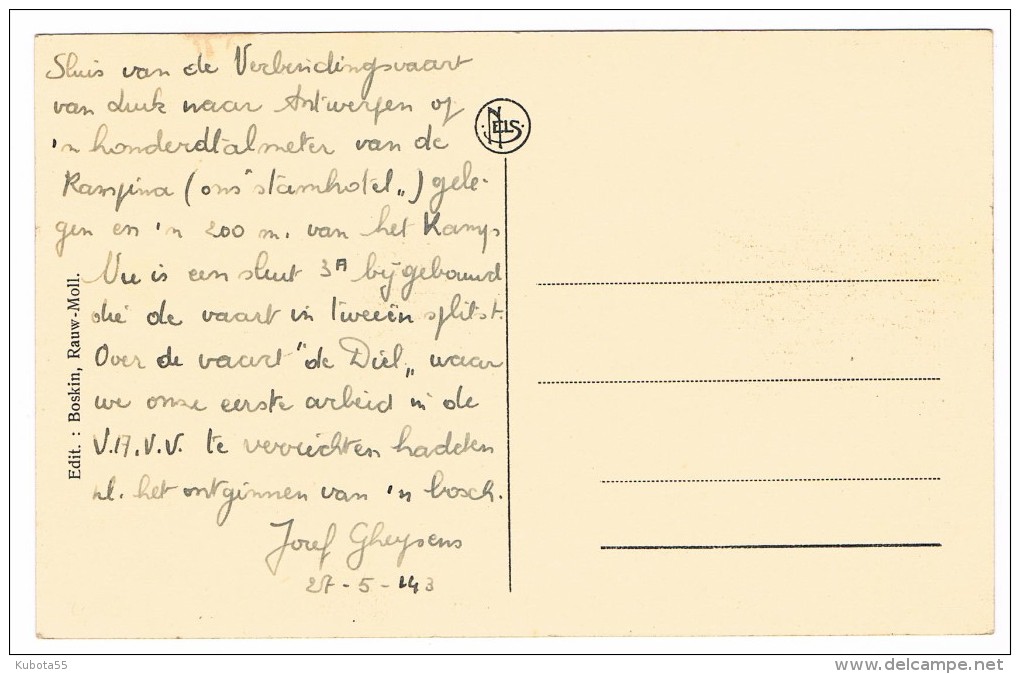 Sluis van de Verbindingsvaart
van Luik naar Antwerpen op
'n honderdtalmeter van de
Kampina (ons "stamhotel„) gele-
gen en 'n 200 m. van het Kamp
Nu is een sluit 3A bijgebouwd
die de vaart in tweeën splitst.
Over de vaart "de Diel„ waar
we onze eerste arbeid in de
V.A.V.V. te verrichten hadden
nl. het ontginnen van 'n bosch.
Jozef Gheysens
27-5-43
Edit. : Boskin, Rauw-Moll.
NELS
Kubota55
www.delcampe.net